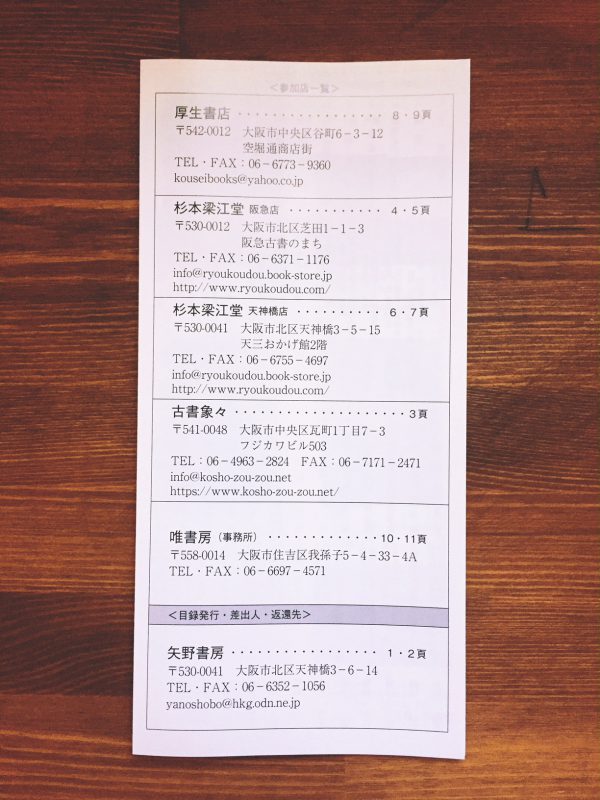 ＜参加店一覧＞
厚生書店 ・・・・・・・・・・・・・・・・・ 8・9頁
〒542-0012 大阪市中央区谷町6－3－12
空堀通商店街
TEL・FAX：06－6773－9360
kouseibooks@yahoo.co.jp
杉本梁江堂 阪急店 ・・・・・・・・・・・ 4・5頁
〒530-0012 大阪市北区芝田1－1－3
阪急古書のまち
TEL・FAX：06－6371－1176
info@ryoukoudou.book-store.jp
http://www.ryoukoudou.com/
杉本梁江堂 天神橋店 ・・・・・・・・・・ 6・7頁
〒530-0041 大阪市北区天神橋3－5－15
天三おかげ館2階
TEL・FAX：06－6755－4697
info@ryoukoudou.book-store.jp
http://www.ryoukoudou.com/
古書象々 ・・・・・・・・・・・・・・・・・・・・3頁
〒541-0048 大阪市中央区瓦町1丁目7－3
フジカワビル503
TEL：06－4963－2824 FAX：06－7171－2471
info@kosho-zou-zou.net
https://www.kosho-zou-zou.net/
唯書房（事務所） ・・・・・・・・・・・・・10・11頁
〒558-0014 大阪市住吉区我孫子5－4－33－4A
TEL・FAX：06－6697－4571
＜目録発行・差出人・返還先＞
矢野書房 ・・・・・・・・・・・・・・・・・ 1・2頁
〒530-0041 大阪市北区天神橋3－6－14
TEL・FAX：06－6352－1056
yanoshobo@hkg.odn.ne.jp